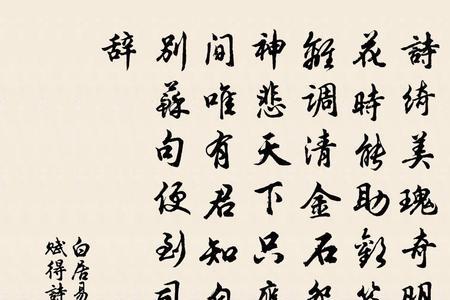 詩綺美瑰奇明
花時能助歡笑
離調清金石怨
神悲天下只應
間唯有君知自
別蘇句便到司
辞
白居易
賦得詩